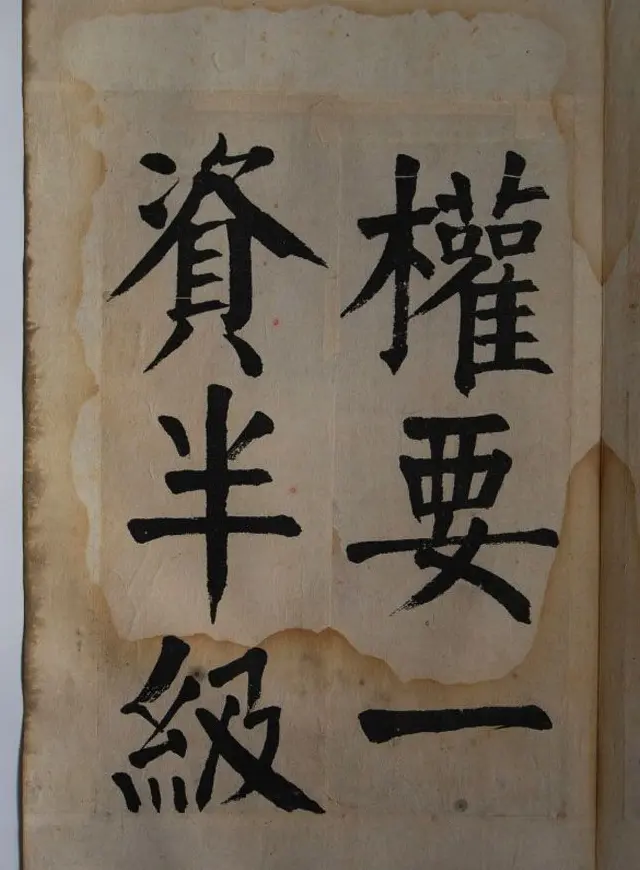 權要一
資半級